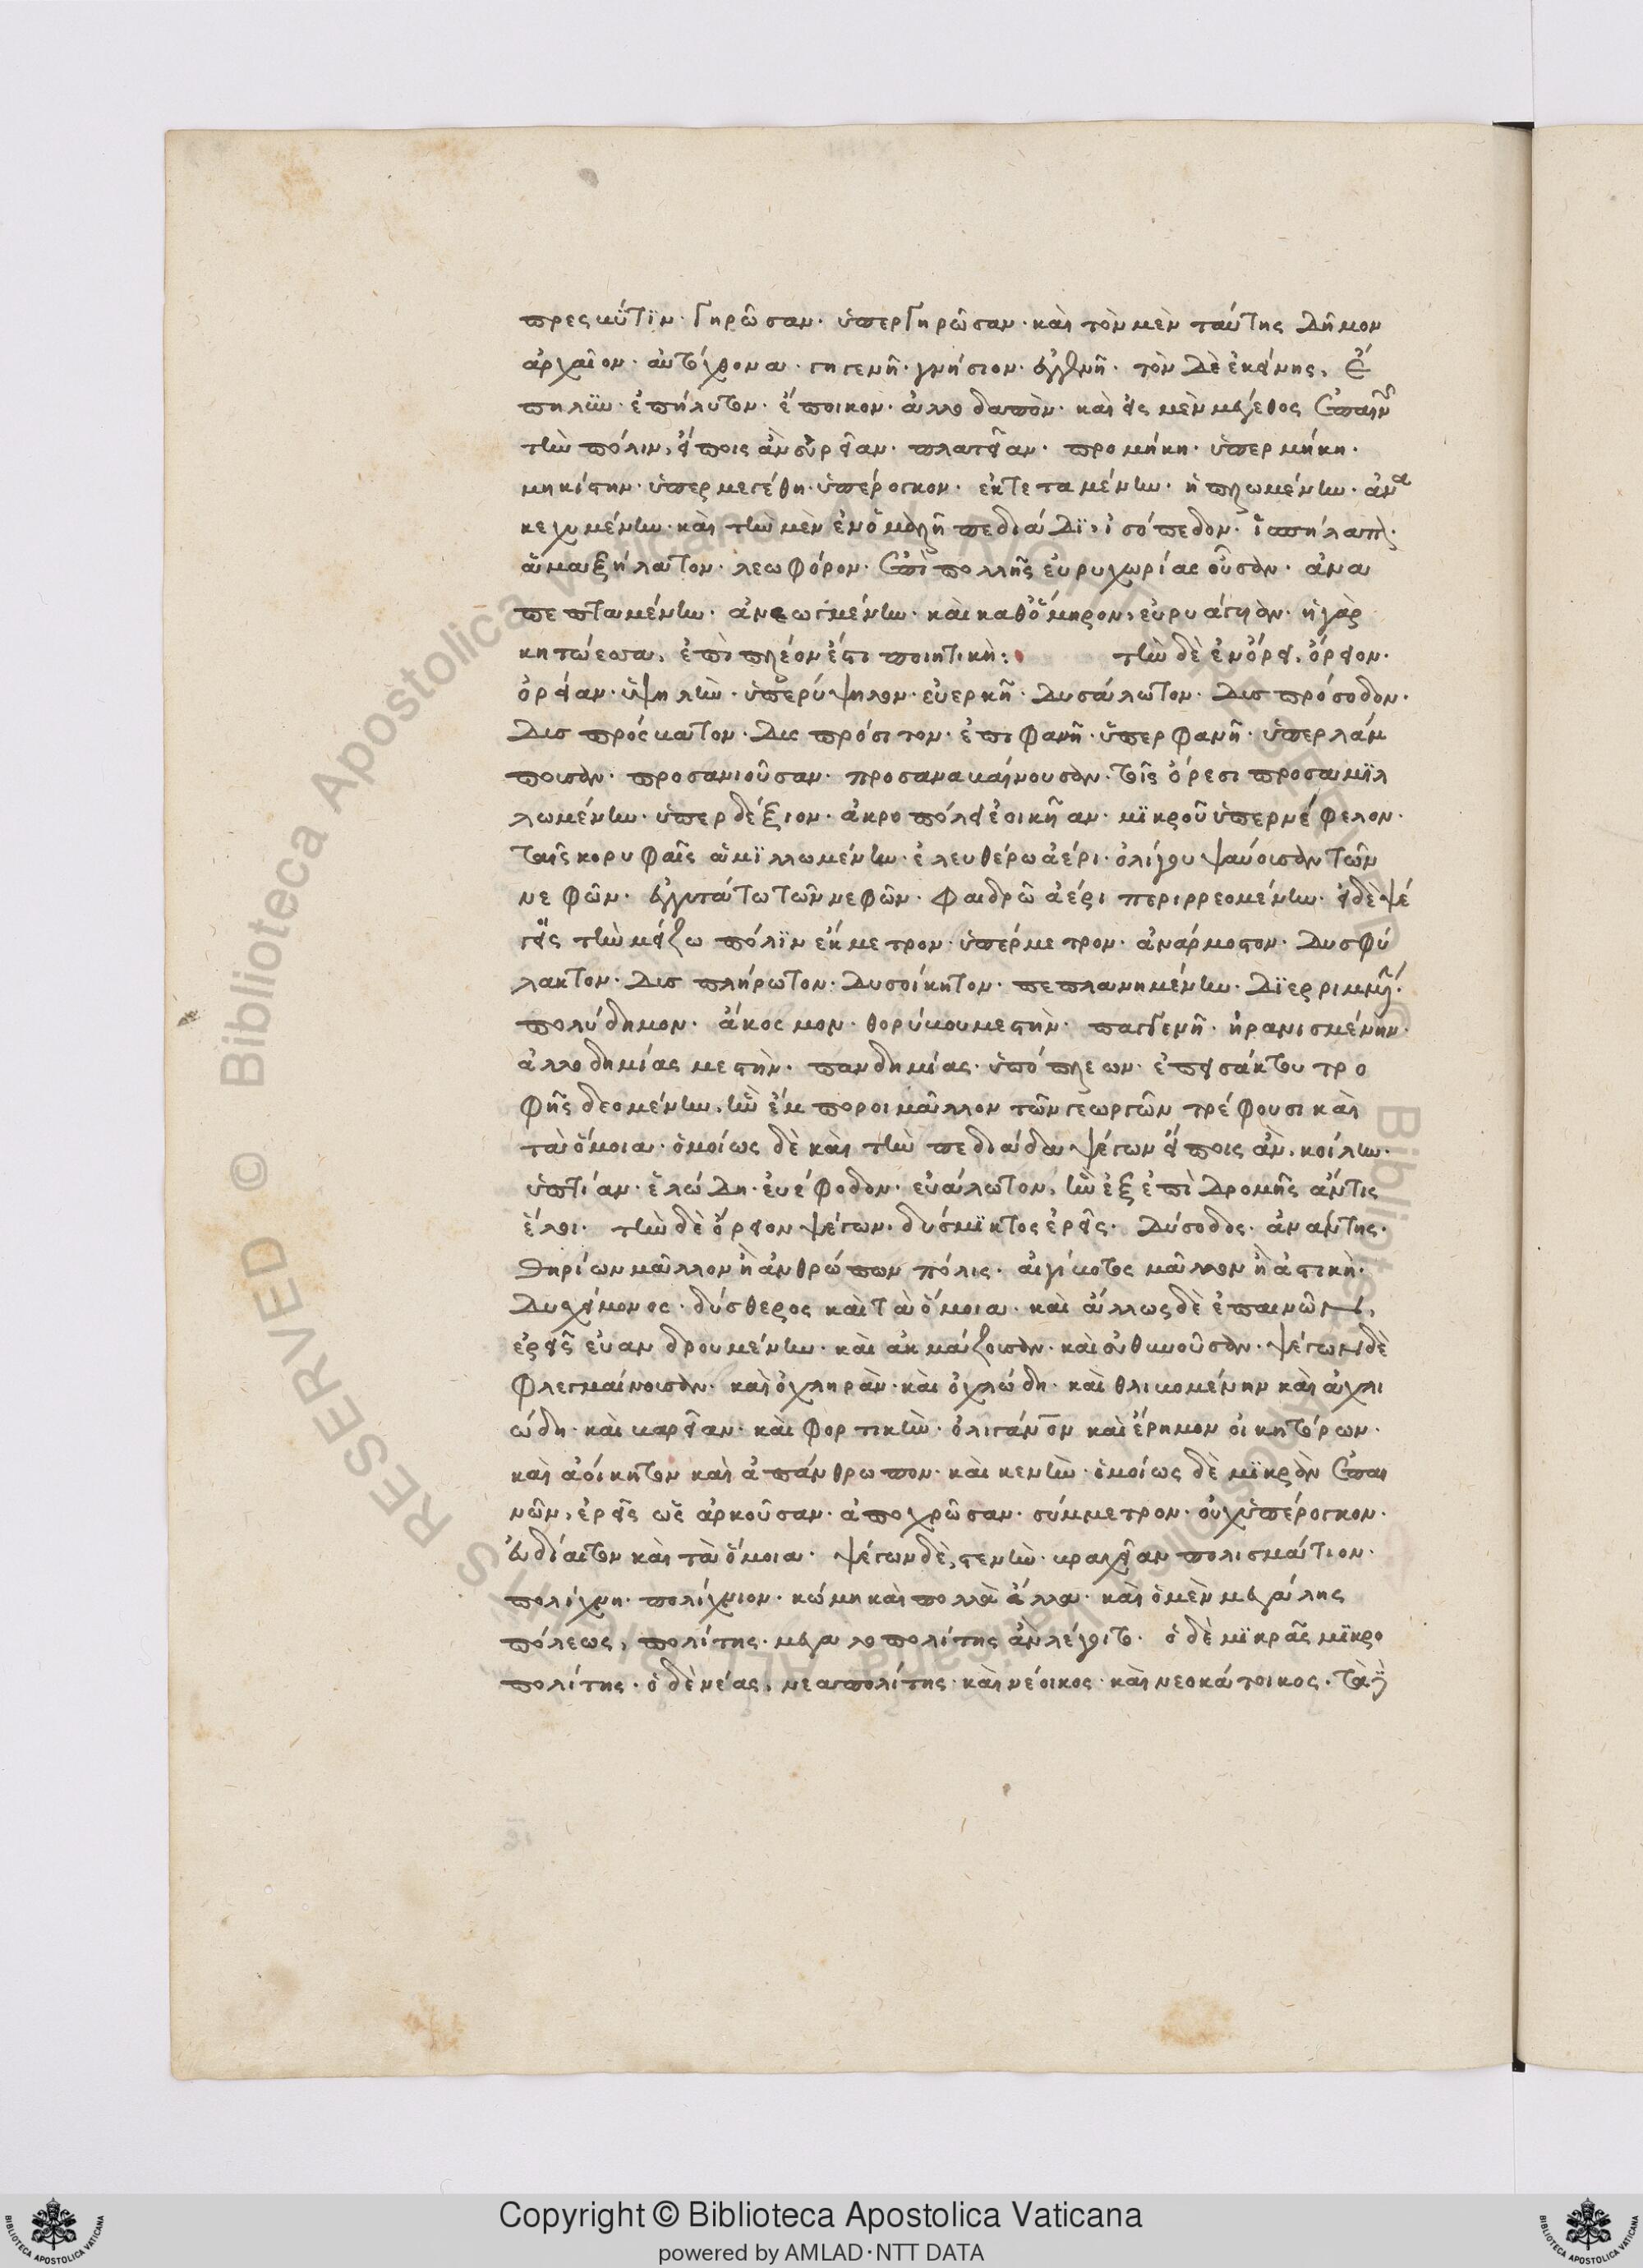 πρεσβῦτιν· γηρῶσαν· ὑπεργηρῶσαν· καὶ τὸν μὲν ταύτης δῆμον
ἀρχαῖον· αὐτόχθονα· γηγενῆ· γνήσιον· ἐγγενῆ· τὸν δὲ ἐκείνης, ἐ
πηλυν· ἐπήλυτον· ἔποικον· ἀλλοδαπὸν· καὶ εἰς μὲν μέγεθος ἐπαινῶν
τὴν πόλιν, εἴποις ἂν εὐρεῖαν· πλατεῖαν· προμήκη· ὑπερμήκη·
μηκίστην· ὑπερμεγέθη· ὑπέρογκον· ἐκτεταμένην· ἡπλωμένην· ἀνα
κεχυμένην· καὶ τὴν μὲν ἐν ὁμαλῆ πεδιάδι, ἰσόπεδον· ἱππήλατον·
ἁμαξήλατον· λεωφόρον· ἐπὶ πολλῆς εὐρυχωρίας οὖσαν· ἀνα
πεπταμένην· ἀνεωγμένην· καὶ καθ' ὅμηρον, εὐρυάγυιαν· ἡ γὰρ
κητώεσσα, ἐπὶ πλέον ἐστὶ ποιητικὴ: τὴν δὲ ἐν ὄρει, ὄρειον·
ὀρείαν· ὑψηλὴν· ὑπερύψηλον· εὐερκῆ· δυσάλωτον· δυσπρόσοδον·
δυσπρόσβατον· δυσπρόσιτον· ἐπιφανῆ· ὑπερφανῆ· ὑπερλάμ
πουσαν· προσανιοῦσαν· προσαναβαίνουσαν· τοῖς ὄρεσι προσαμιλ
λωμένην· ὑπερδέξιον· ἀκροπόλει ἐοικῆαν· μικροῦ ὑπερνέφελον·
ταῖς κορυφαῖς ἁμιλλωμένην· ἐλευθέρω ἀέρι· ὀλίγου ψαύουσαν τῶν
νεφῶν· ἐγγυτάτω τῶν νεφῶν· φαιδρῶ ἀέρι περιρρεομένην· εἰ δὲ ψέ
γεις τὴν μείζω πόλιν ἔκμετρον· ὑπέρμετρον· ἀνάρμοστον· δυσφύ
λακτον· δυσπλήρωτον· δυσοίκητον· πεπλανημένην· διερριμμένην·
πολύδημον· ἄκοσμον· θορύβου μεστὴν· παγγενῆ· ἠρανισμένην·
ἀλλοδημίας μεστὴν· πανδημίας· ὑπόπλεων· ἐπεισάκτου τρο
φῆς δεομένην, ἣν ἔμποροι μᾶλλον τῶν γεωργῶν τρέφουσι καὶ
τὰ ὅμοια· ὁμοίως δὲ καὶ τὴν πεδιάδα ψέγων εἴποις ἂν, κοίλην·
ὑπτίαν· ἑλώδη· εὐέφοδον· εὐάλωτον, ἣν ἐξ ἐπιδρομῆς ἄν τις
ἕλοι· τὴν δὲ ὄρειον ψέγων· δύσμικτος ἐρεῖς· δύσοδος· ἀνάντης·
θηρίων μᾶλλον ἢ ἀνθρώπων πόλις· αἰγίβοτος μᾶλλον ἢ ἀστικὴ·
δυσχείμονος· δύσθερος καὶ τὰ ὅμοια· καὶ ἄλλως δὲ ἐπαινῶν,
ἐρεῖς εὐανδρουμένην· καὶ ἀκμάζουσαν· καὶ εὐθυνοῦσαν· ψέγων δὲ
φλεγμαίνουσαν· καὶ ὀχληρὰν· καὶ ὀχλώδη· καὶ θλιβομένην καὶ ἀχλι
ώδη· καὶ βαρεῖαν· καὶ φορτικὴν· ὀλιγάνθρωπον καὶ ἔρημον οἰκητόρων·
καὶ ἀοίκητον καὶ ἀπάνθρωπον· καὶ κενὴν· ὁμοίως δὲ μικρὰν ἐπαι
νῶν, ἐρεῖς ὡς ἀρκοῦσαν· ἀποχρῶσαν· σύμμετρον· οὐχ ὑπέρογκον·
εὐδίαιτον καὶ τὰ ὅμοια· ψέγων δὲ, στενὴν· βραχεῖαν πολισμάτιον·
πολίχνη· πολίχνιον· κώμη καὶ πολλὰ ἄλλα· καὶ ὁ μὲν μεγάλης
πόλεως, πολίτης· μεγαλοπολίτης ἂν λέγοιτο· ὁ δὲ μικρᾶς μικρο
πολίτης· ὁ δὲ νέας, νεαπολίτης· καὶ νέοικος· καὶ νεοκάτοικος· τὰ δὲ
© Biblioteca Apostolica Vaticana
Copyright © Biblioteca Apostolica Vaticana
powered by AMLAD·NTT DATA